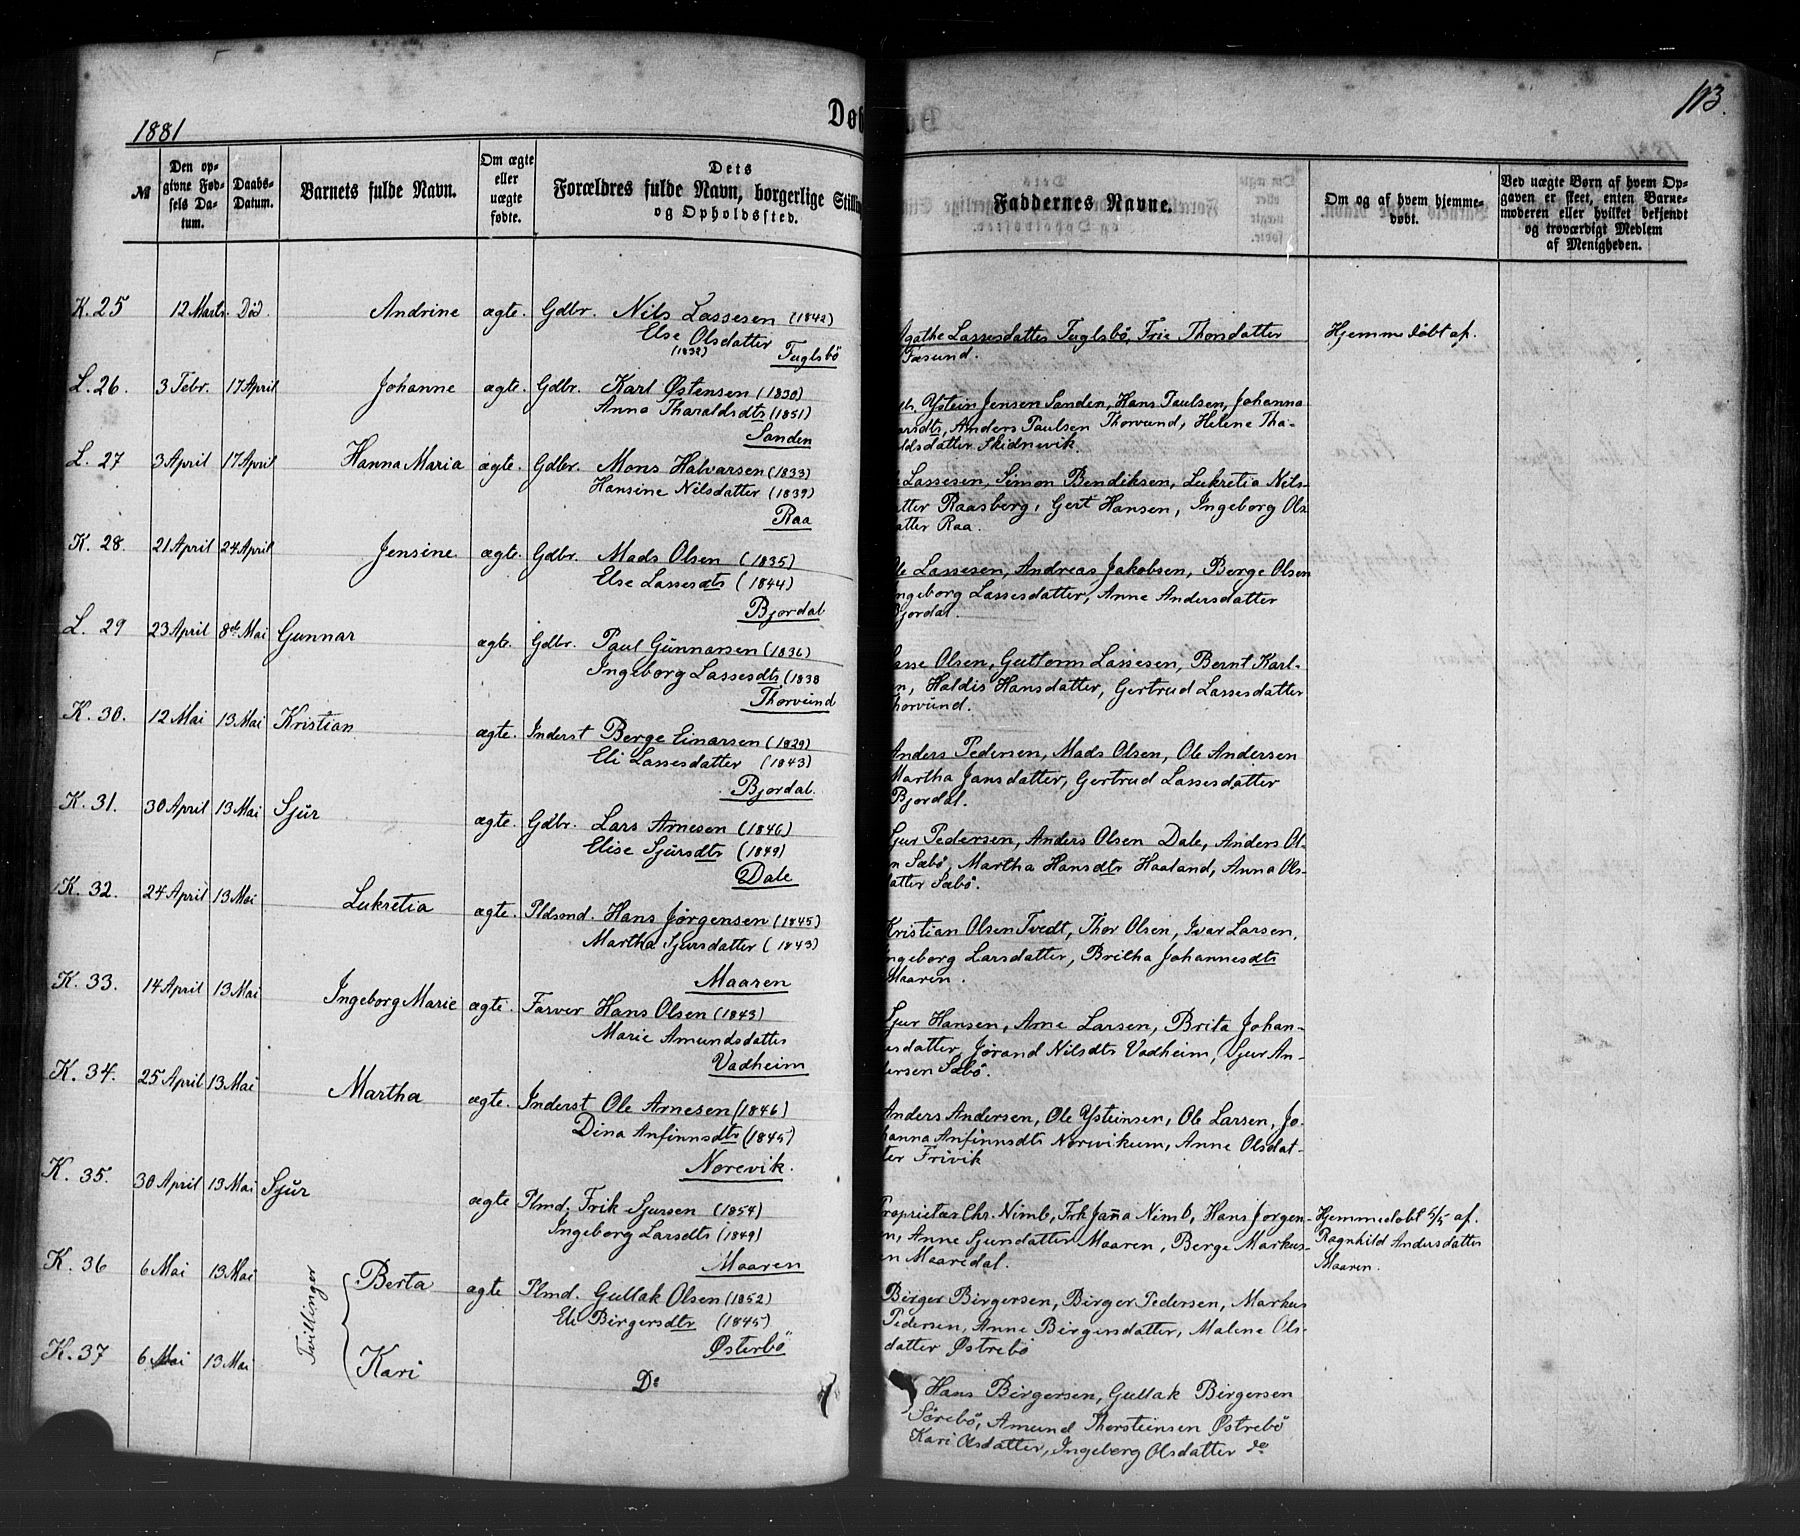 1881
113.
Døb
№
Den op-
givne Fød-
sels Da-
tum.
Daabs-
Datum.
Barnets fulde Navn.
Om ægte
eller
uægte
fødte.
Dets
Forældres fulde Navn, borgerlige Stilli
og Opholdssted.
Faddernes Navne.
Om og af hvem hjemme-
døbt.
Ved uægte Børn af hvem Op-
gaven er skeet, enten Barne-
moderen eller hvilket bekjendt
og troværdigt Medlem
af Menigheden.
K. 25 12 Marts. Død. Andrine ægte. Gdbr. Nils Lassesen (1842)
Else Olsdatter
(1832) Fuglsbö
Agathe Lassesdatter Fuglsbö, Thorsdatter
Hjemmedöbt af.
L. 26 3 Febr. 17 April Johanne ægte. Gdbr. Karl Østensen (1830)
Anna Tharaldsdtr (1851)
Sanden
Ystein Jensen Sanden, Hans Paulsen, Johanna
Anders Paulsen Thorvund, Helene Tha-
ldsdatter Skidnevik.
L. 27 3 April 17 April Hanna Maria ægte. Gdbr. Mons Halvarsen (1833)
Hansine Nilsdatter (1839)
Raa
Lassesen, Simon Bendiksen, Lukretia Nils-
atter Raasberg, Gert Hansen, Ingeborg Ols
atter Raa.
K. 28. 21 April 24 April Jensine ægte. Gdbr. Mads Olsen (1835)
Else Lassesdtr (1844)
Bjordal
Ole Lassesen, Andreas Jakobsen, Berge Olsen
Ingeborg Lassesdatter, Anne Andersdatter
Bjordal.
L. 29 23 April 8de Mai Gunnar ægte. Gdbr. Paul Gunnarsen (1836)
Ingeborg Lassesdtr (1838
Thorvund
Lasse Olsen, Guttorm Lassesen, Bernt Karl-
n, Haldis Hansdatter, Gertrud Lassesdatter
horvund.
K. 30. 12 Mai 13 Mai Kristian ægte. Inderst Berge Einarsen (1829)
Eli Lassesdatter (1843)
Bjordal.
Anders Pedersen, Mads Olsen, Ole Andersen
Martha Jansdatter, Gertrud Lassesdatter
Bjordal.
K. 31. 30 April 13 Mai Sjur ægte. Gdbr. Lars Arnesen (1846)
Elise Sjursdtr (1849)
Dale
Sjur Pedersen, Anders Olsen Dale, Anders Ol-
n Sæbö, Martha Hansdtr Haaland, Anna Ols-
datter Sæbö.
K. 32. 24 April 13 Mai Lukretia ægte. Pldsmd. Hans Jørgensen (1845)
Martha Sjursdatter (1843)
Maaren
Kristian Olsen Tvedt, Thor Olsen, Ivar Larsen,
Ingeborg Larsdatter, Britha Johannesdtr
Maaren.
K. 33. 14 April 13 Mai Ingeborg Marie ægte. Farver Hans Olsen (1843)
Marie Amundsdatter
Vadheim
Sjur Hansen, Arne Larsen, Brita Johan-
esdatter, Jørand Nilsdtr Vadheim, Sjur An-
dersen Sæbö.
K. 34. 25 April 13 Mai Martha ægte. Inderst Ole Arnesen (1846)
Dina Anfinnsdtr (1845)
Norevik.
Anders Andersen, Ole Ysteinsen, Ole Larsen, Jo-
hanna Anfinnsdtr Norevikum, Anne Olsdat-
ter Frivik
K. 35. 30 April 13 Mai Sjur ægte Plmd. Frik Sjursen (1854)
Ingeborg Larsdtr (1849)
Maaren
Proprietær Chr. Nimb, Frk Janna Nimb, Hans Jorgen-
en, Anne Sjursdatter Maaren, Berge Markus-
en Maaredal.
Hjemmedobt 5/5 af.
Ragnhild Andersdatter
Maaren.
K. 36 6 Mai 13 Mai Tvillinger Berta ægte Plmd. Gullak Olsen (1852)
Eli Birgersdtr (1845)
Østerbö
Birger Birgersen, Birger Pedersen, Markus
Pedersen, Anne Birgersdatter, Malene Ols-
datter Østrebö
K. 37 6 Mai 13 Mai Kari Do
Hans Birgersen, Gullak Birgersen
Sörebö, Amund Thorsteinsen Østrebö
Kari Olsdatter, Ingeborg Olsdatter do